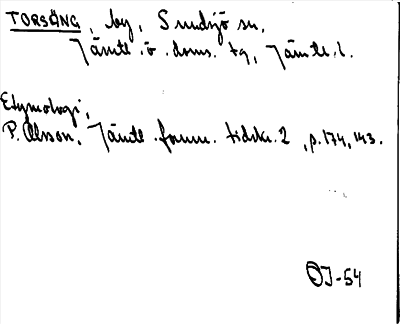 TORSÄNG, by, Sundsjö sn,
Jämtl. ö. doms. tg, Jämtl. l.
Etymologi,
P. Olsson, Jämtl. fornm. tidskr. 2, p. 174, 143.
OJ-54